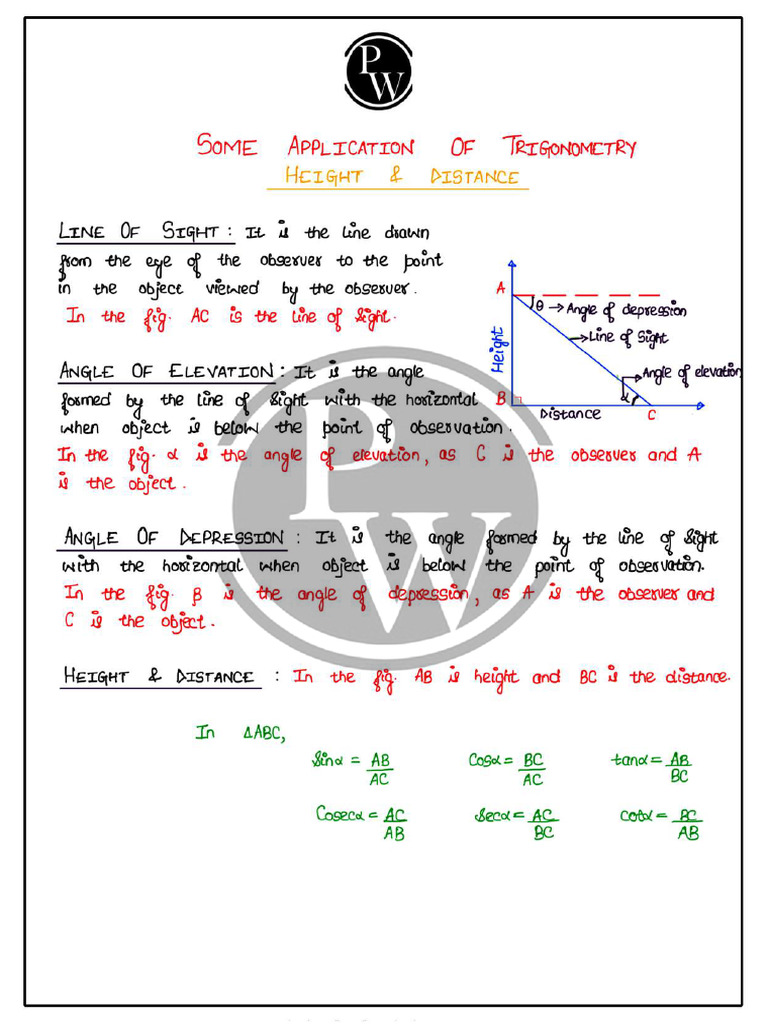 P
W
SOME APPLICATION OF TRIGONOMETRY
HEIGHT & DISTANCE
LINE OF SIGHT : It is the line drawn
from the eye of the observer to the point
in the object viewed by the observer.
In the fig. AC is the line of Sight.
A
θ → Angle of depression
→ Line of Sight
Height
Angle of elevation
B
α
Distance
C
ANGLE OF ELEVATION : It is the angle
formed by the line of Sight with the horizontal
when object is below the point of observation.
In the fig. α is the angle of elevation, as C is the observer and A
is the object.
P
W
ANGLE OF DEPRESSION : It is the angle formed by the line of Sight
with the horizontal when object is below the point of observation.
In the fig. β is the angle of depression, as A is the observer and
C is the object.
HEIGHT & DISTANCE : In the fig. AB is height and BC is the distance.
In ΔABC,
Sinα = AB/AC Cosα = BC/AC tanα = AB/BC
Cosecα = AC/AB Secα = AC/BC cotα = BC/AB